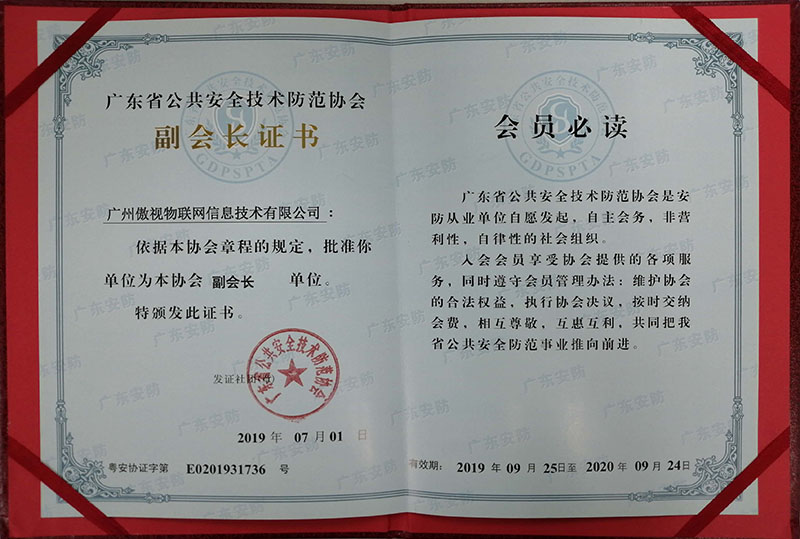 广东省公共安全技术防范协会
副会长证书
广州傲视物联网信息技术有限公司：
依据本协会章程的规定，批准你
单位为本协会 副会长 单位。
特颁发此证书。
发证社团
广东省公共安全技术防范协会
2019 年 07 月 01 日
粤安协证字第 E0201931736 号
会员必读
广东省公共安全技术防范协会是安
防从业单位自愿发起，自主会务，非营
利性，自律性的社会组织。
入会会员享受协会提供的各项服
务，同时遵守会员管理办法：维护协会
的合法权益，执行协会决议，按时交纳
会费，相互尊敬，互惠互利，共同把我
省公共安全防范事业推向前进。
有效期： 2019 年 09 月 25日至 2020 年 09 月 24日
GDPSPTA
GDPSPTA
广东安防